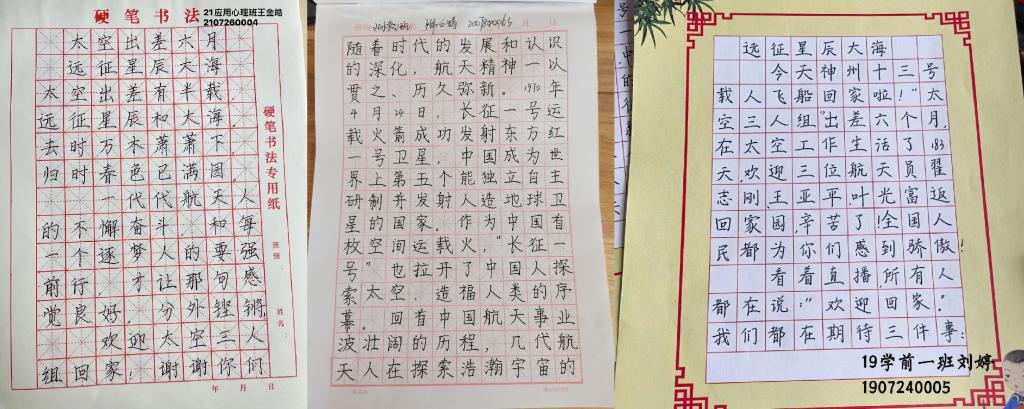 硬笔书法
21应用心理班王金皓
2107260004
太空出差六月，
远征星辰大海。
太空出差有半载，
远征星辰和大海。
去时万木萧萧下，
归时春色已满园。
一代代航天人
的不懈奋斗，和每
一个逐梦人的要强
前行，才让那句感
觉良好，分外铿锵。
欢迎太空三人
组回家！谢谢你们
硬笔书法专用纸
班级：
姓名：
年 月 日
月 日
随着时代的发展和认识
的深化，航天精神一以
贯之、历久弥新。1970年
4月24日，长征一号运
载火箭成功发射东方红
一号卫星，中国成为世
界上第五个能独立自主
研制并发射人造地球卫
星的国家。作为中国首
枚空间运载火，“长征一
号”也拉开了中国人探
索太空，造福人类的序
幕。回首中国航天事业
波壮阔的历程，几代航
天人在探索浩瀚宇宙的
远征星辰大海
今天神州十三号
载人飞船回家啦！”太
空三人组“出差六个月，
在太空工作生活了183
天，欢迎三位航天员翟
志刚，王亚平叶光富返
回家园，辛苦了！全国人
民都为你们感到骄傲！
看着直播，所有人
都在说：“欢迎回家。”
我们都在期待三件事：
19学前一班刘婷
1907240005